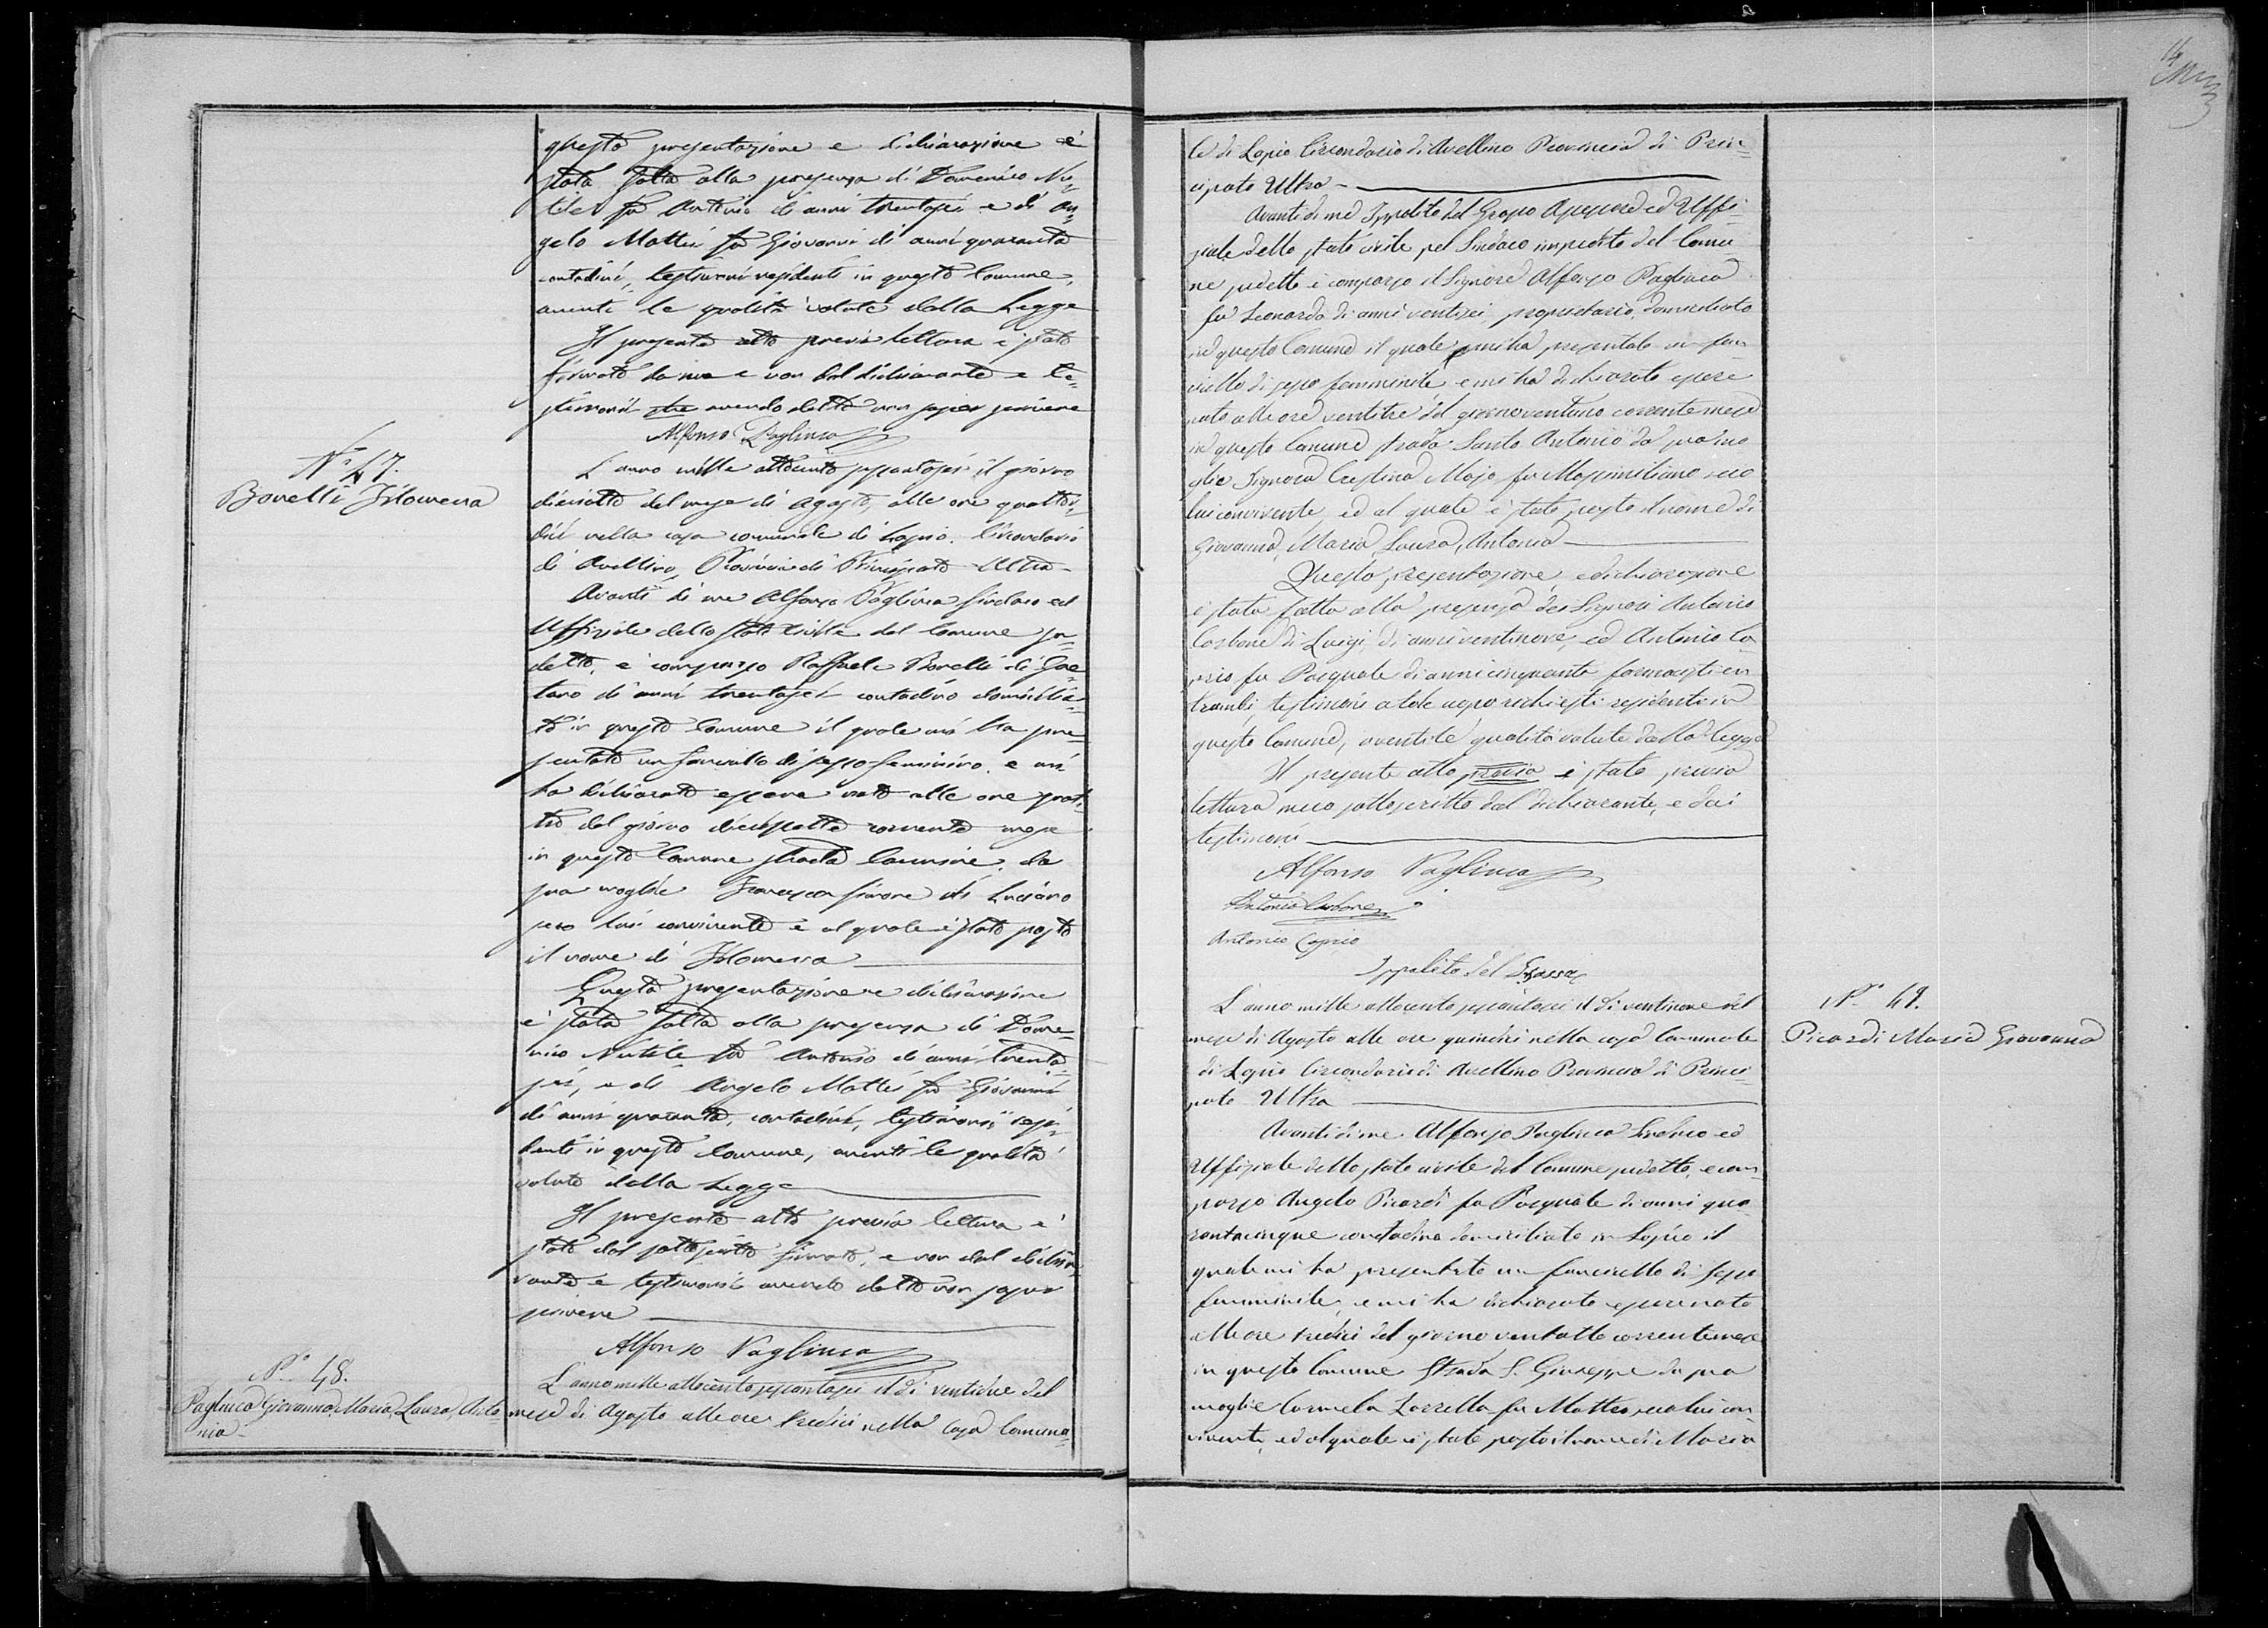 questa presentazione e dichiarazione è
stata fatta alla presenza di Domenico Nu-
tile fu Antonio di anni trentasei e di An-
gelo Mattei fu Giovanni di anni quaranta
contadini, testimoni residenti in questo Comune,
aventi le qualità volute dalla Legge
Il presente atto previa lettura è stato
firmato da me e non dal dichiarante e te-
stimoni avendo detto non saper scrivere
Alfonso Pagliuca
N.° 47.
Bonelli Filomena
L'anno mille ottocento sessantasei il giorno
diciotto del mese di Agosto, alle ore quattor-
dici nella casa comunale di Lapio. Circondario
di Avellino, Provincia di Principato Ultra-
Avanti di me Alfonso Pagliuca Sindaco ed
Uffiziale dello Stato Civile del Comune su-
detto, è comparso Raffaele Bonelli di Gae-
tano di anni trentasei contadino domicilia-
to in questo Comune il quale mi ha pre-
sentato un fanciullo di sesso feminino, e mi
ha dichiarato essere nato alle ore quat-
tro del giorno diciassette corrente mese
in questo Comune strada da
sua moglie Francesca Simone di Luciano
seco lui convivente e al quale è stato posto
il nome di Filomena
Questa presentazione e dichiarazione
è stata fatta alla presenza di Dome-
nico Nutile fu Antonio di anni trenta-
sei, e di Angelo Mattei fu Giovanni
di anni quaranta, contadini, testimonii resi-
denti in questo Comune, aventi le qualità
volute dalla Legge
Il presente atto previa lettura è
stato dal sottoscritto firmato, e non dal dichia-
rante e testimoni avendo detto non saper
scrivere
Alfonso Pagliuca
N.° 48.
Pagliuca Giovanna, Maria, Laura, Anto
nia-
L'anno mille ottocento sessantasei il dì ventidue del
mese di Agosto alle ore tredici nella casa Comuna-
le di Lapio Circondario di Avellino Provincia di Prin-
cipato Ultra-
Avanti di me Ippolito del Grosso Assessore ed Uffi-
ziale dello stato civile pel Sindaco impedito del Comu-
ne sudetto è comparso il Signore Alfonso Pagliuca
fu Leonardo di anni ventisei proprietario, domiciliato
in questo Comune il quale mi ha presentato un fan-
ciullo di sesso femminile, e mi ha dichiarato essere
nato alle ore ventitre del giorno ventuno corrente mese
in questo Comune strada Santo Antonio da sua mo
glie Signora Cristina Majo fu Massimiliano seco
lui convivente, ed al quale è stato posto il nome di
Giovanna, Maria, Laura, Antonia
Questa presentazione, e dichiarazione
è stata fatta alla presenza dei Signori Antonio
Carbone di Luigi, di anni ventinove, ed Antonio Ca
prio fu Pasquale di anni cinquanta farmacisti en
trambi, testimoni a tale uopo richiesti residenti in
questo Comune, aventi le qualità volute dalla legge
Il presente atto previa è stato previa
lettura meco sottoscritto dal dichiarante, e dai
testimoni
Alfonso Pagliuca
Antonio Carbone
Antonio Caprio
Ippolito del Grosso
N.° 49.
Picardi Maria Giovanna
L'anno mille ottocento sessantasei il dì ventinove del
mese di Agosto alle ore quindici nella casa Comunale
di Lapio Circondario di Avellino Provincia di Princi
pato Ultra
Avanti di me Alfonso Pagliuca Sindaco ed
Uffiziale dello stato civile del Comune sudetto, è com
parso Angelo Picardi fu Pasquale di anni qua
rantacinque contadino domiciliato in Lapio il
quale mi ha presentato un fanciullo di sesso
femminile, e mi ha dichiarato essere nato
alle ore tredici del giorno ventotto corrente mese
in questo Comune Strada S. Giuseppe da sua
moglie Carmela Zarrella fu Matteo, seco lui con
vivente, ed al quale è stato posto il nome di Maria